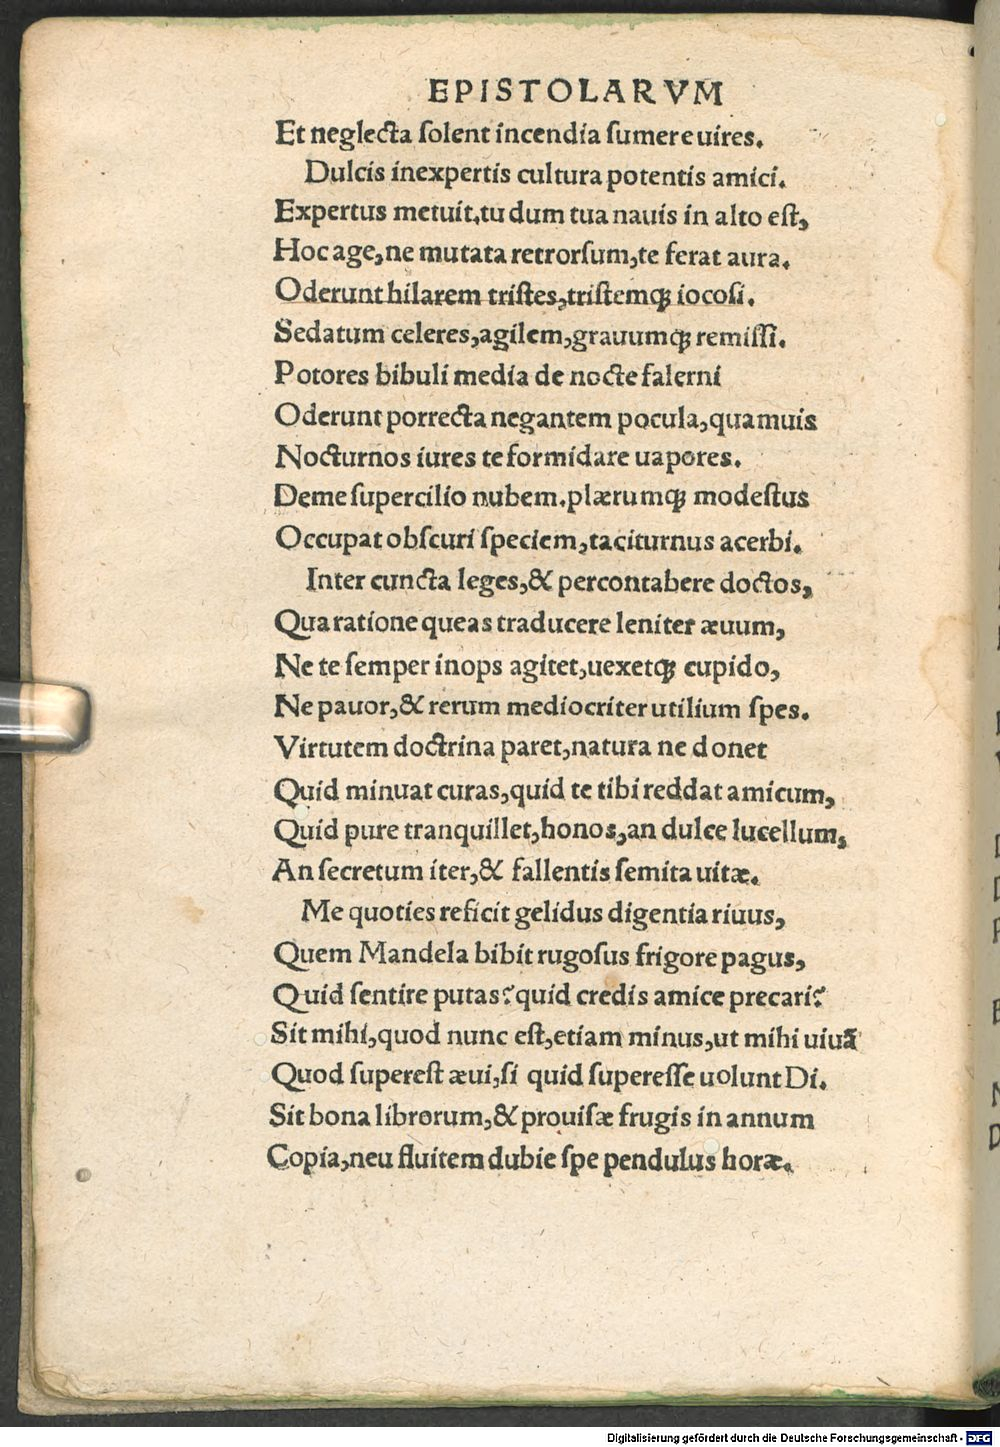 EPISTOLARVM
Et neglecta solent incendia sumere uires.
Dulcis inexpertis cultura potentis amici.
Expertus metuit, tu dum tua nauis in alto est,
Hoc age, ne mutata retrorsum, te ferat aura.
Oderunt hilarem tristes, tristemqꝫ iocosi.
Sedatum celeres, agilem, grauumqꝫ remissi.
Potores bibuli media de nocte falerni
Oderunt porrecta negantem pocula, quamuis
Nocturnos iures te formidare uapores.
Deme supercilio nubem. plærumqꝫ modestus
Occupat obscuri speciem, taciturnus acerbi.
Inter cuncta leges, & percontabere doctos,
Qua ratione queas traducere leniter æuum,
Ne te semper inops agitet, uexetqꝫ cupido,
Ne pauor, & rerum mediocriter utilium spes.
Virtutem doctrina paret, natura ne donet
Quid minuat curas, quid te tibi reddat amicum,
Quid pure tranquillet, honos, an dulce lucellum,
An secretum iter, & fallentis semita uitæ.
Me quoties reficit gelidus digentia riuus,
Quem Mandela bibit rugosus frigore pagus,
Quid sentire putas? quid credis amice precari?
Sit mihi, quod nunc est, etiam minus, ut mihi uiuã
Quod superest æui, si quid superesse uolunt Di.
Sit bona librorum, & prouisæ frugis in annum
Copia, neu fluitem dubie spe pendulus horæ.
Digitalisierung gefördert durch die Deutsche Forschungsgemeinschaft - DFG